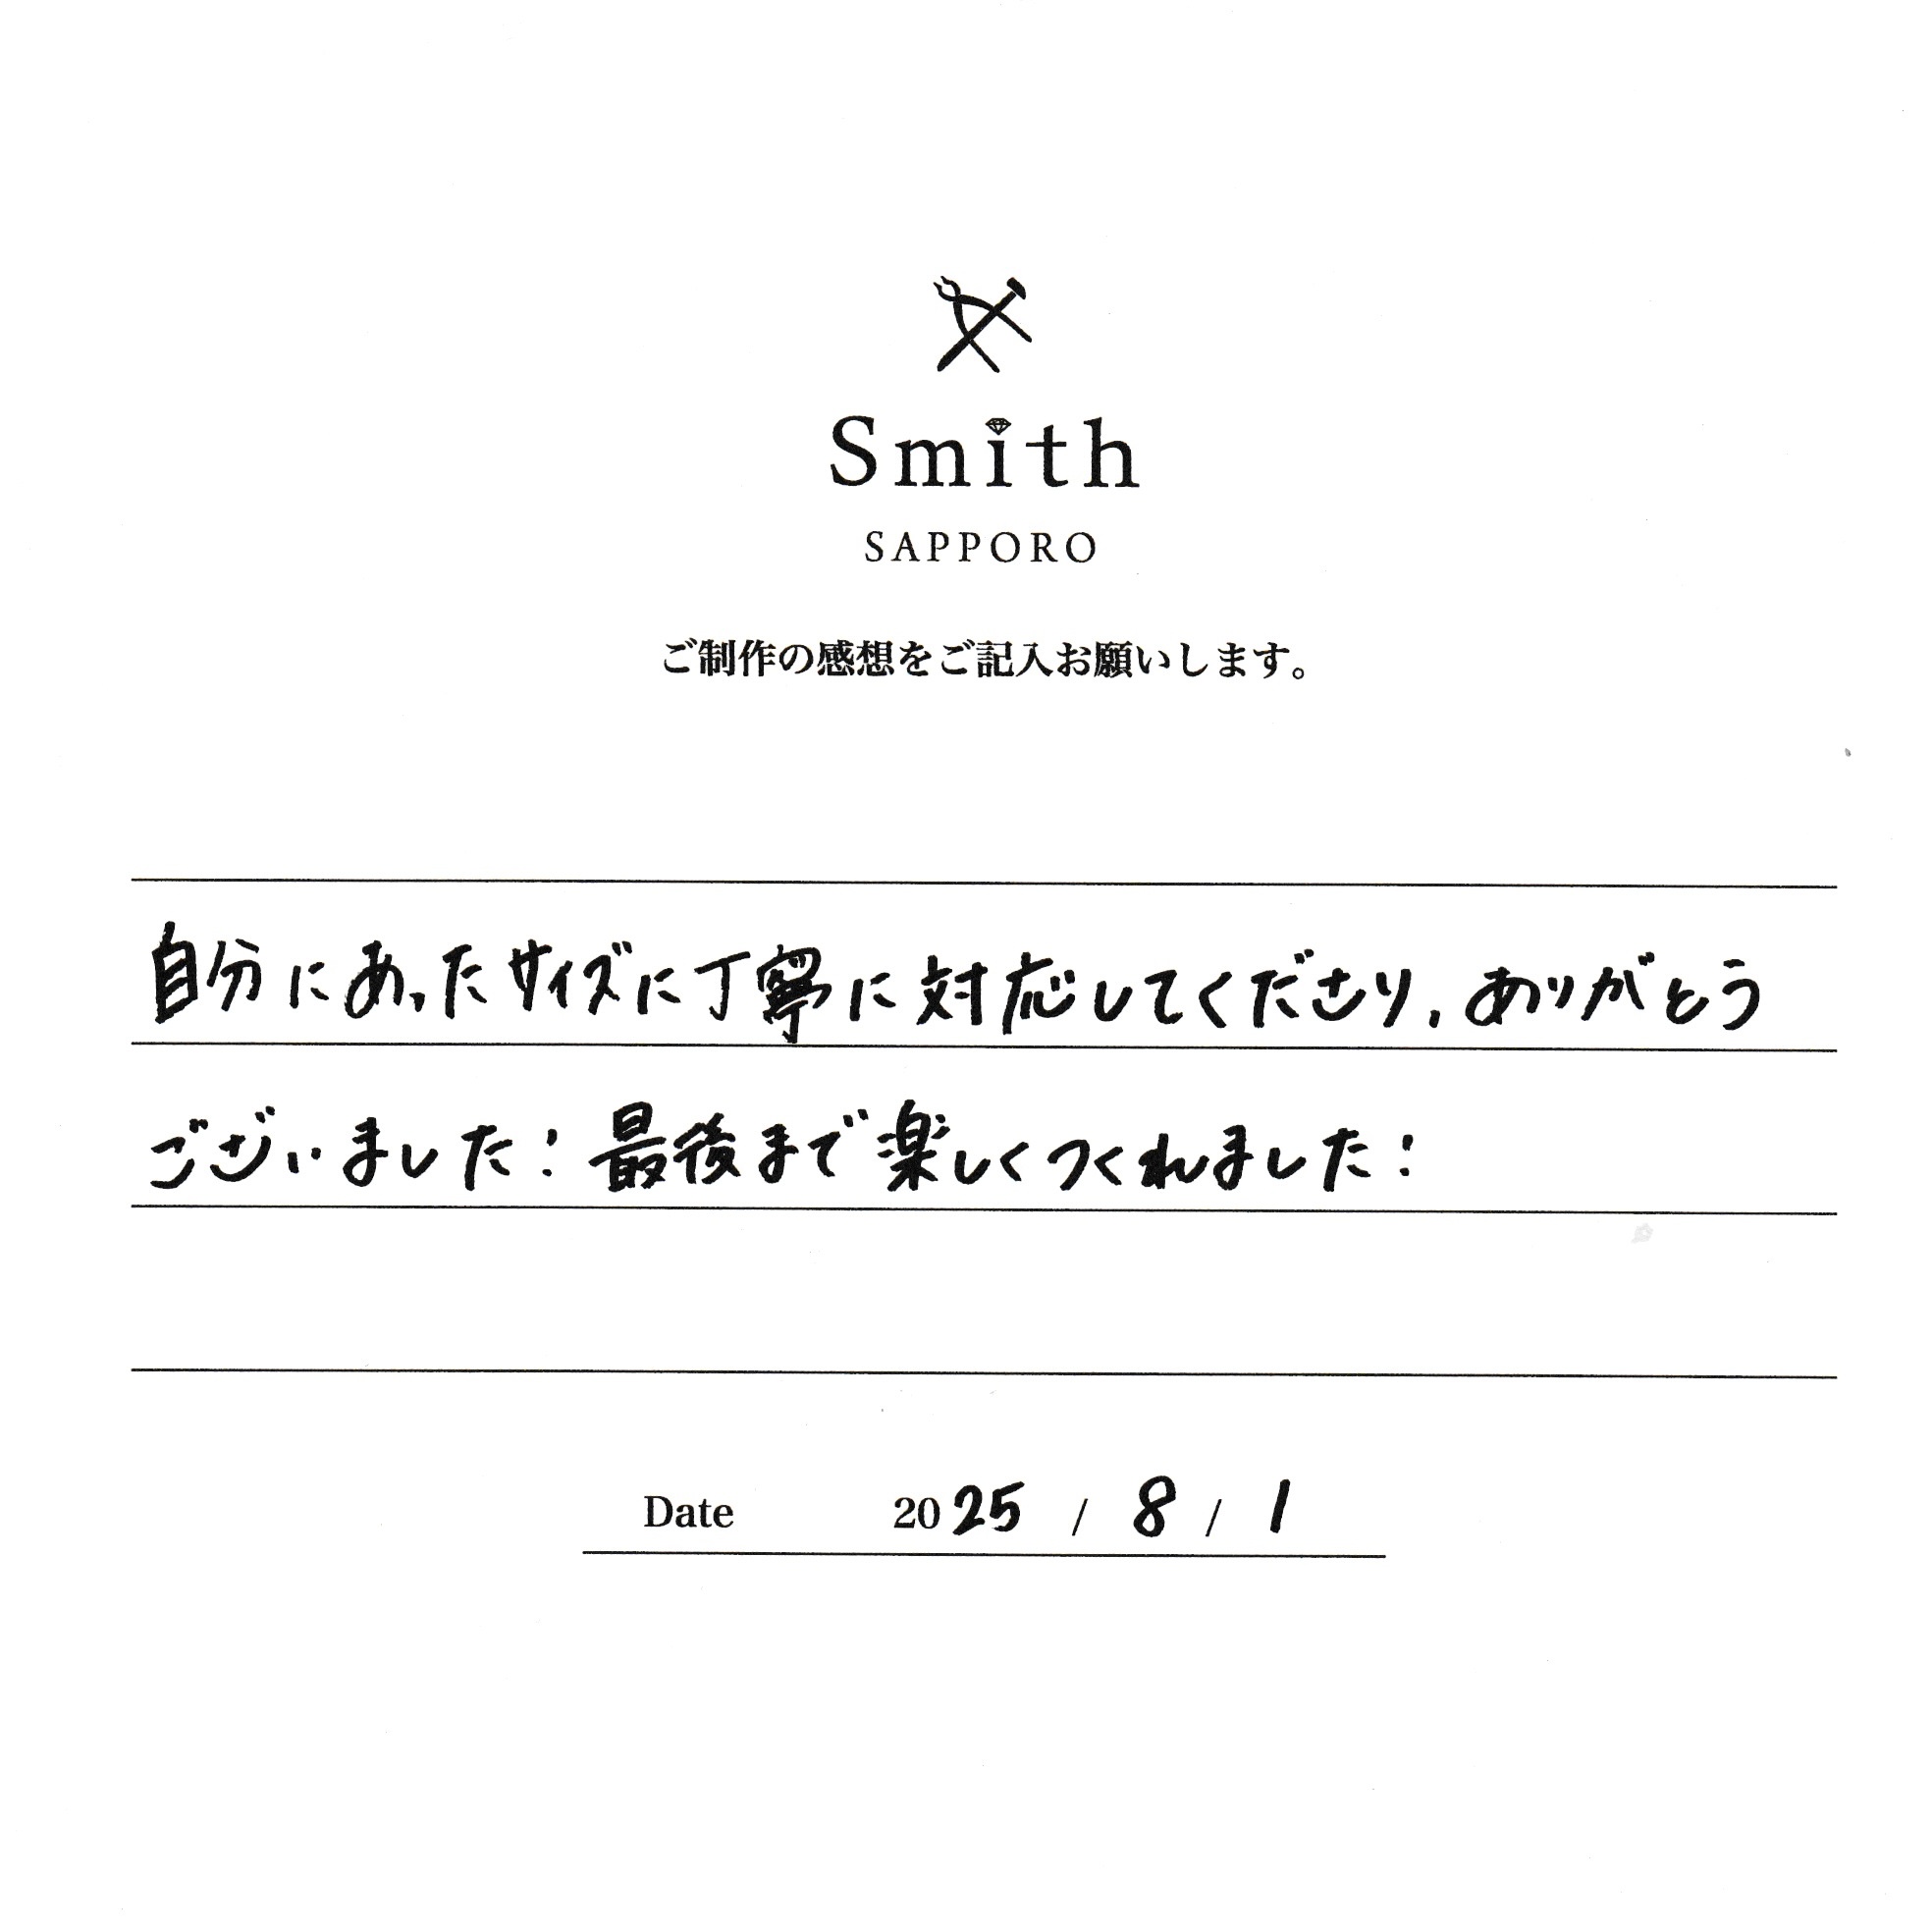 Smith
SAPPORO
ご制作の感想をご記入お願いします。
自分にあったサイズに丁寧に対応してくださり、ありがとう
ございました！最後まで楽しくつくれました！
Date 2025 / 8 / 1